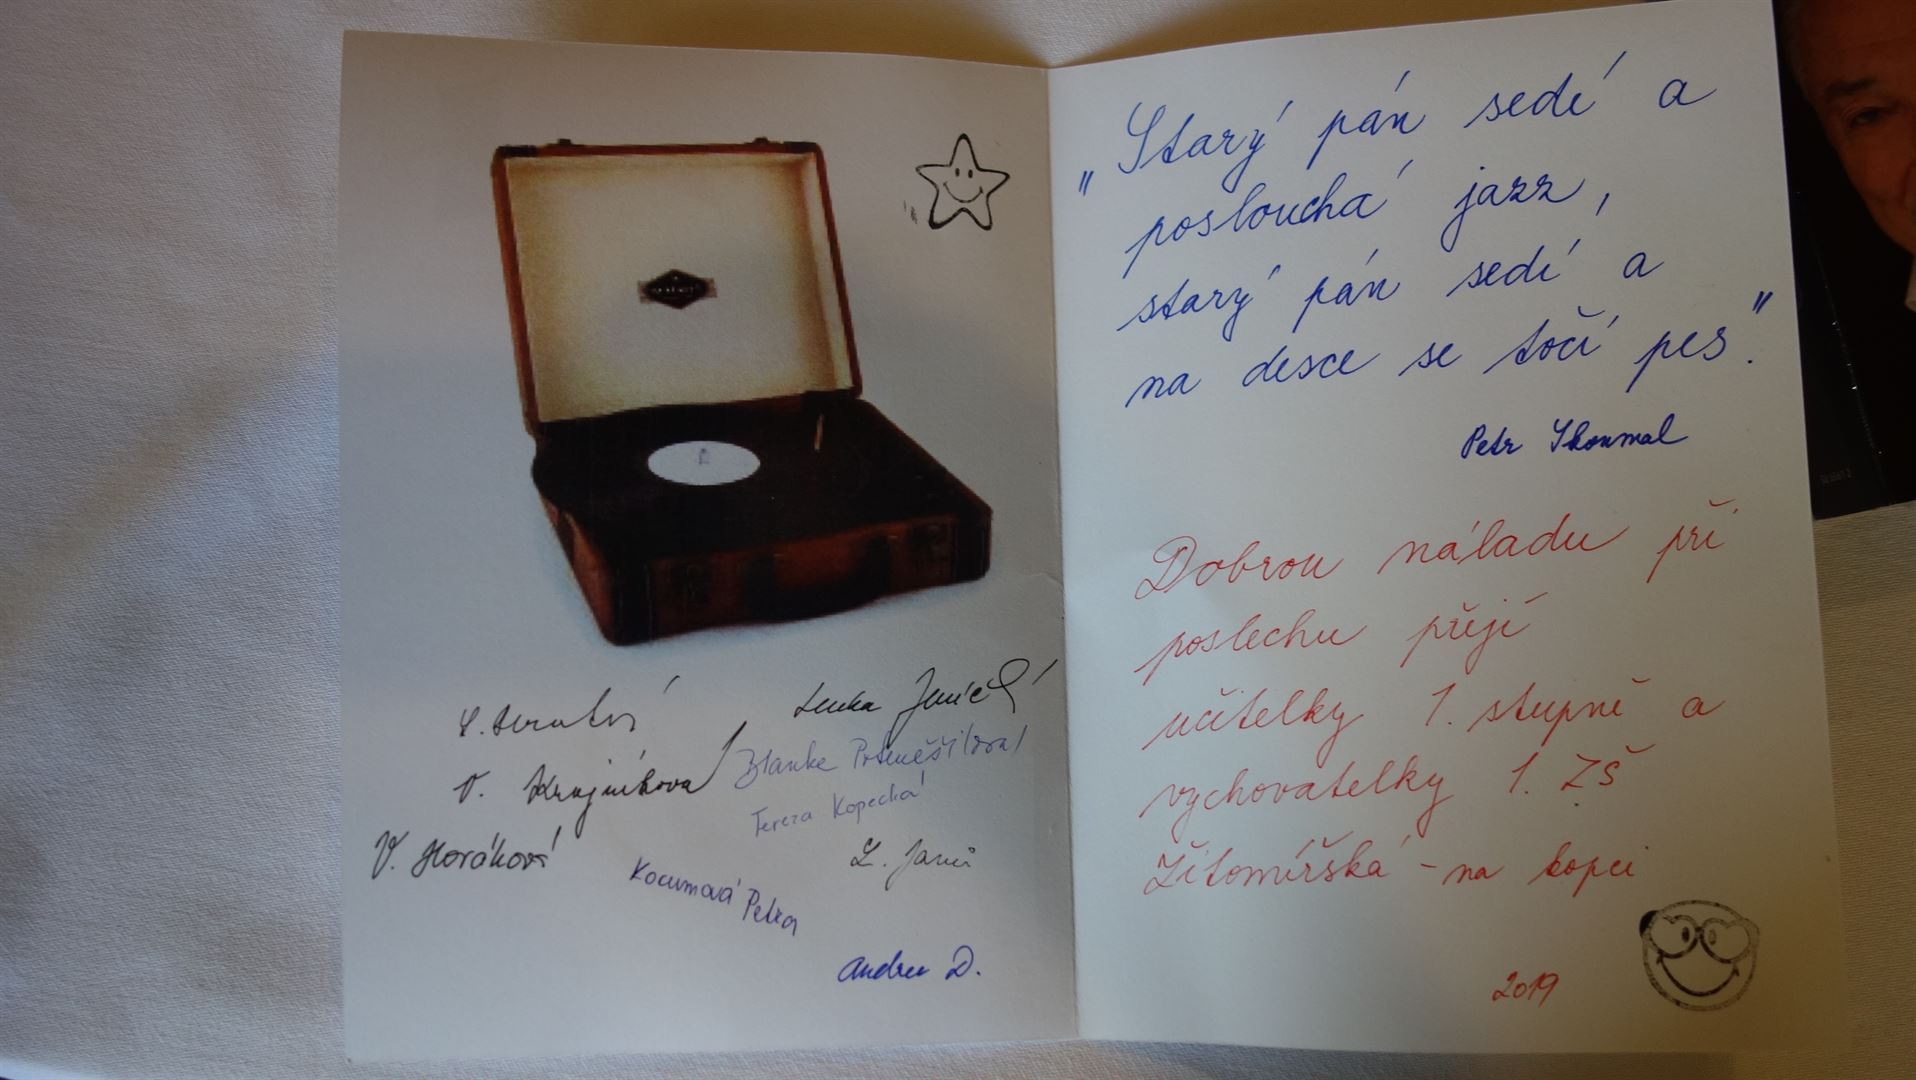 V. Krajníková
V. Horáková
Lenka
Blanka
Tereza Kopecká
Kocumová Petra
Andrea D.
"Starý pán sedí a
poslouchá jazz,
starý pán sedí a
na desce se točí pes."
Petr Skoumal
Dobrou náladu při
poslechu přejí
učitelky 1. stupně a
vychovatelky 1. ZŠ
Žitomířská - na kopci
2019